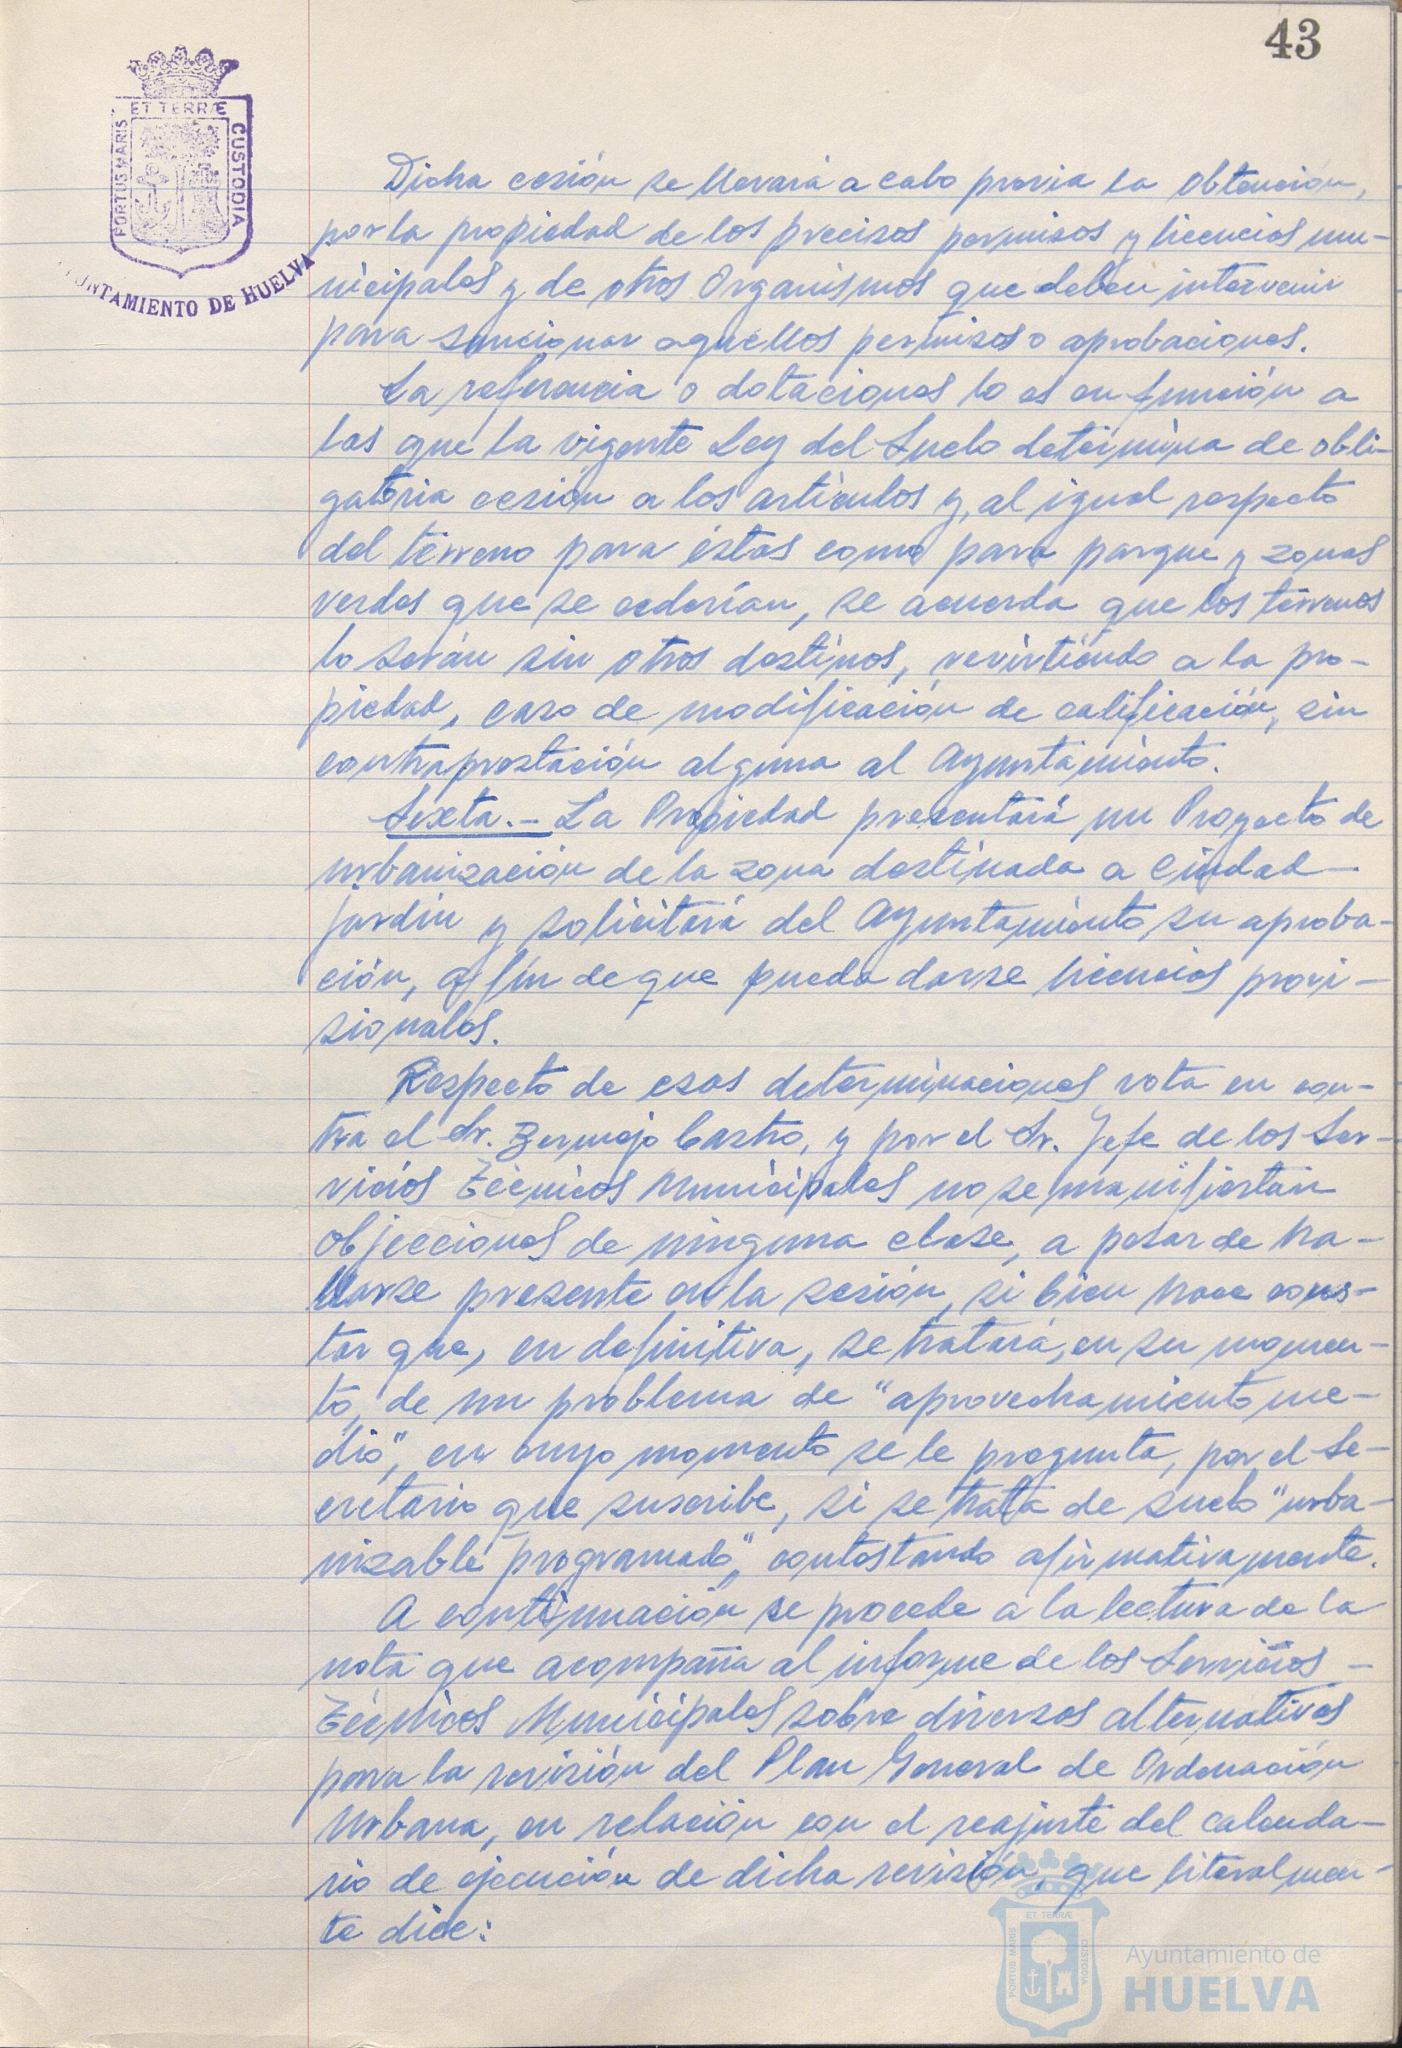 43
ET TERRÆ
PORTUS MARIS
CUSTODIA
AYUNTAMIENTO DE HUELVA
Dicha cesión se llevará a cabo previa la obtención,
por la propiedad de los precisos permisos y licencias mu-
nicipales y de otros Organismos que deben intervenir
para sancionar aquellos permisos o aprobaciones.
La referencia a dotaciones lo es en función a
las que la vigente Ley del Suelo determina de obli-
gatoria cesión a los artículos y, al igual respecto
del terreno para éstas como para parque y zonas
verdes que se cederían, se acuerda que los terrenos
lo serán sin otros destinos, revirtiendo a la pro-
piedad, caso de modificación de calificación, sin
contraprestación alguna al Ayuntamiento.
Sexta.- La Propiedad presentará un Proyecto de
urbanización de la zona destinada a Ciudad-
jardín y solicitará del Ayuntamiento su aproba-
ción, a fín de que pueda darse licencias provi-
sionales.
Respecto de esas determinaciones vota en con-
tra el Sr. Bermejo Castro, y por el Sr. Jefe de los Ser-
vicios Técnicos Municipales no se manifiestan
objecciones de ninguna clase, a pesar de ha-
llarse presente en la sesión, si bien hace cons-
tar que, en definitiva, se tratará, en su momen-
to, de un problema de "aprovechamiento me-
dio", en cuyo momento se le pregunta, por el Se-
cretario que suscribe, si se trata de suelo "urba-
nizable programado", contestando afirmativamente.
A continuación se procede a la lectura de la
nota que acompaña al informe de los Servicios -
Técnicos Municipales sobre diversas alternativas
para la revisión del Plan General de Ordenación
Urbana, en relación con el reajuste del calenda-
rio de ejecución de dicha revisión, que literalmen-
te dice:
ET TERRÆ
PORTUS MARIS
CUSTODIA
Ayuntamiento de
HUELVA